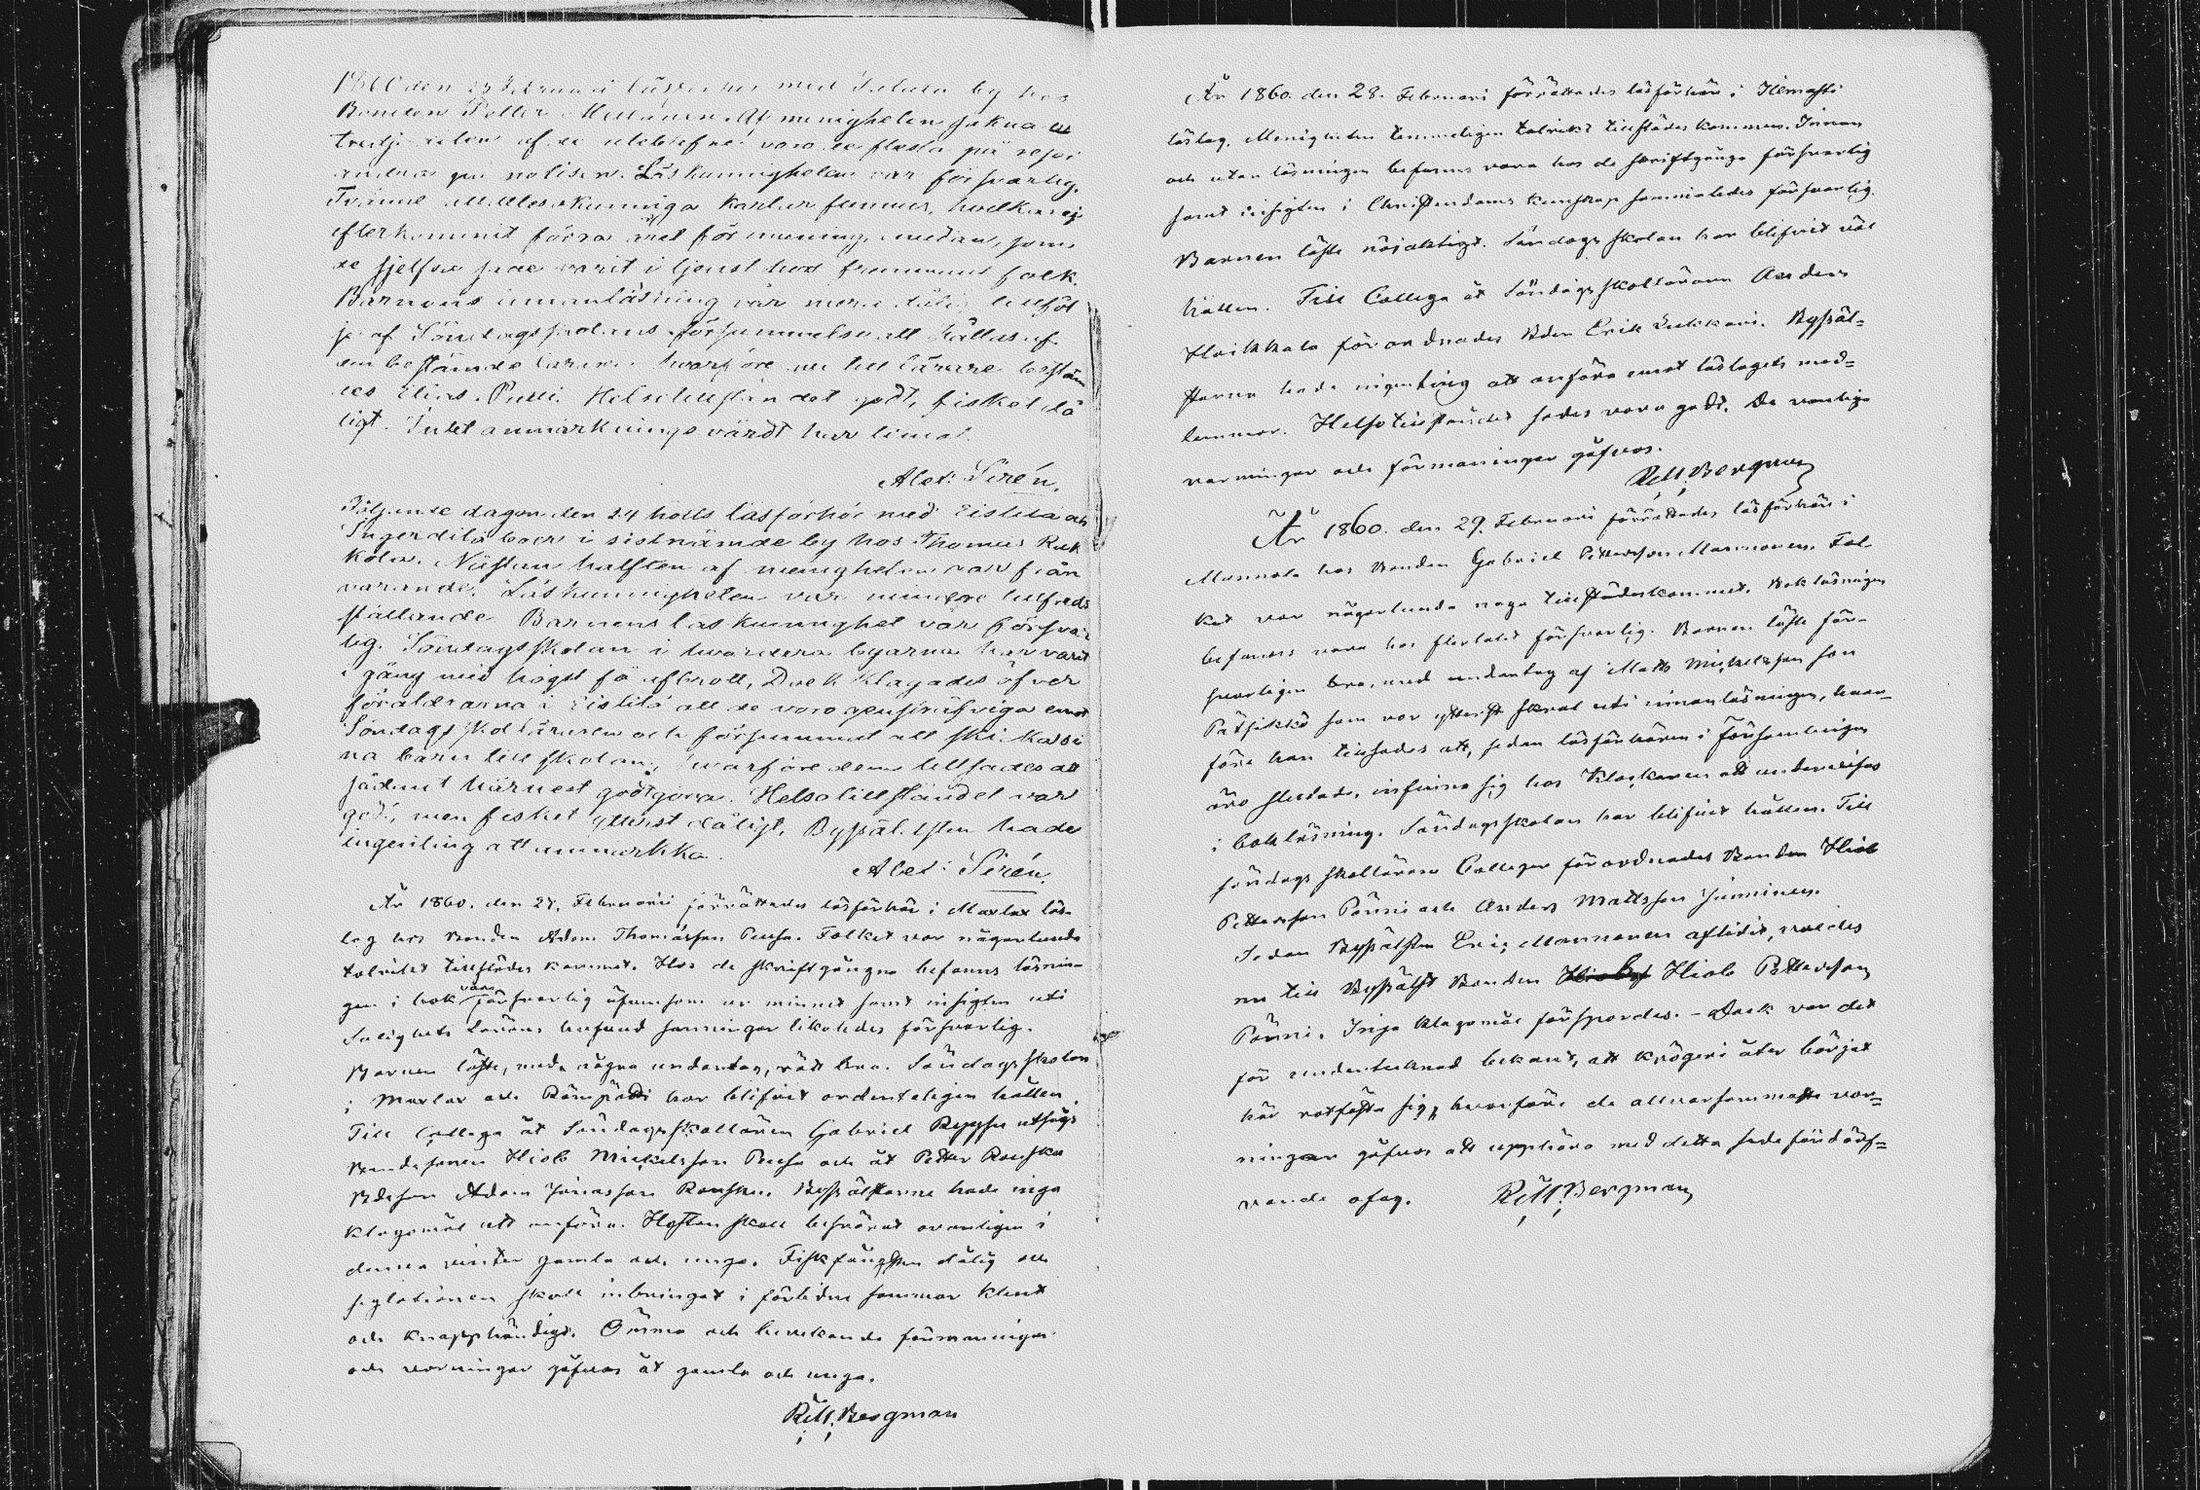 1860 den 23 Februari läsförhör med by hos
Bonden Petter . Af menigheten saknades
tredje delen af de uteblefne voro de flesta på resor
andra på notisen. Läskunnigheten var försvarlig.
Tvänne alldeles okunniga karlar funnos, hvilka ej
efterkommit förra året förmaning, medan, som
de sjelfve sade varit i tjenst hos främmant folk.
Barnens innanläsning var mera dålig till föl
je af Söndagsskolans försummelse att hållas af
den bestämde läraren hvarföre nu till lärare bestäm
des Elias . Helsotillståndet godt, fisket då
ligt. Intet anmärkningsvärdt har timat.
Alex: Sirén.
Följande dagen den 24 hölls läsförhör med Eistilä och
Ingerttilä byar i sistnämde by hos Thomas Ruk
kola. Nästan hälften af menigheten var från
varande. Läskunnigheten var mindre tillfreds
ställande. Barnens läskunnighet var försvar
lig. Söndagsskolan i hvardera byarna har varit
i gång med högst få afbrott, Dock klagades öfver
föräldrarna i Eistilä att de voro gensträfviga emot
Söndagsskolläraren och försummat att skicka si
na barn till skolan, hvarföre dem tillsades att
sådant härnest godtgöra. Helsotillståndet var
godt, men fisket ytterst dåligt, Byssälsten hade
ingenting att anmärka.
Alex: Sirén.
År 1860. den 27. Februarii förrättades läsförhör i Maxlax läs-
lag hos Bonden Adam Thomasson . Folket var någorlunda
talrikt tillstädes kommet. Hos de skriftgångna befanns läsnin-
gen i bok vara försvarlig äfvensom ur minnet samt insigten uti
Salighets Lärans hufvud sanningar likaledes försvarlig.
Barnen läste, med några undantag, rätt bra. Söndagsskolan
i Maxlax och har blifvit ordenteligen hållen.
Till Collega åt Söndagsskolläraren Gabriel utsågs
Bondesonen Hiob Mickelsson och åt Petter
Bdeson Adam Jonasson . Byssälstarne hade inga
klagomål att anföra. Hostan skall besvärat ovanligen i
denna vinter gamla och unga. Fiskfångsten dålig och
seglationen skall inbringat i förliden sommar klent
och knapphändigt. Ömma och bevekande förmaningar
och varningar gåfvos åt gamla och unga.
R: M: Bergman
År 1860. den 28. Februari förrättades läsförhör i
läslag. Menigheten temmeligen talrikt tillstädes kommen. Innan
och utan läsningen befanns vara hos de skriftgångna försvarlig
samt insigten i Christendoms kunskap sammaledes försvarlig.
Barnen läste nöjaktigt. Söndagsskolan har blifvit väl
hållen. Till Collega åt Söndagsskolläraren Anders
Hoikkala förordnades Bden Erik . Byssäl=
starne hade ingenting att anföra emot läslagets med=
lemmar. Helsotillståndet sades vara godt. De vanliga
varningar och förmaningar gåfvos.
R: M: Bergman
År 1860. den 29. Februari förrättades läsförhör i
Mannola hos Bonden Gabriel Pettersson Mannonen. Fol-
ket var någorlunda noga tillstädeskommet. Bokläsningen
befanns vara hos flertalet försvarlig. Barnen läste för-
svarligen bra, med undantag af Matts Mickelsson son
som var ytterst skral uti innanläsningen, hvar-
före han tillsades att, sedan läsförhören i Församlingen
äro slutade, infinna sig hos Klockaren att undervisas
i bokläsning. Söndagsskolan har blifvit hållen. Till
söndags skollärare Collegor förordnades Bonden Hiob
Pettersson Pönni och Anders Mattsson Junninen.
Sedan Byssälsten Eric Mannonen aflidit, valdes
nu till Byssälst Bonden Hiob Pettersson
Pönni. Inga klagomål förspordes. – Dock var det
för undertecknad bekant, att krögeri åter börjat
här rotfästa sig, hvarföre de allvarsammaste var=
ningar gåfvos att upphöra med detta sedeförderf=
vande ofog. R: M: Bergman